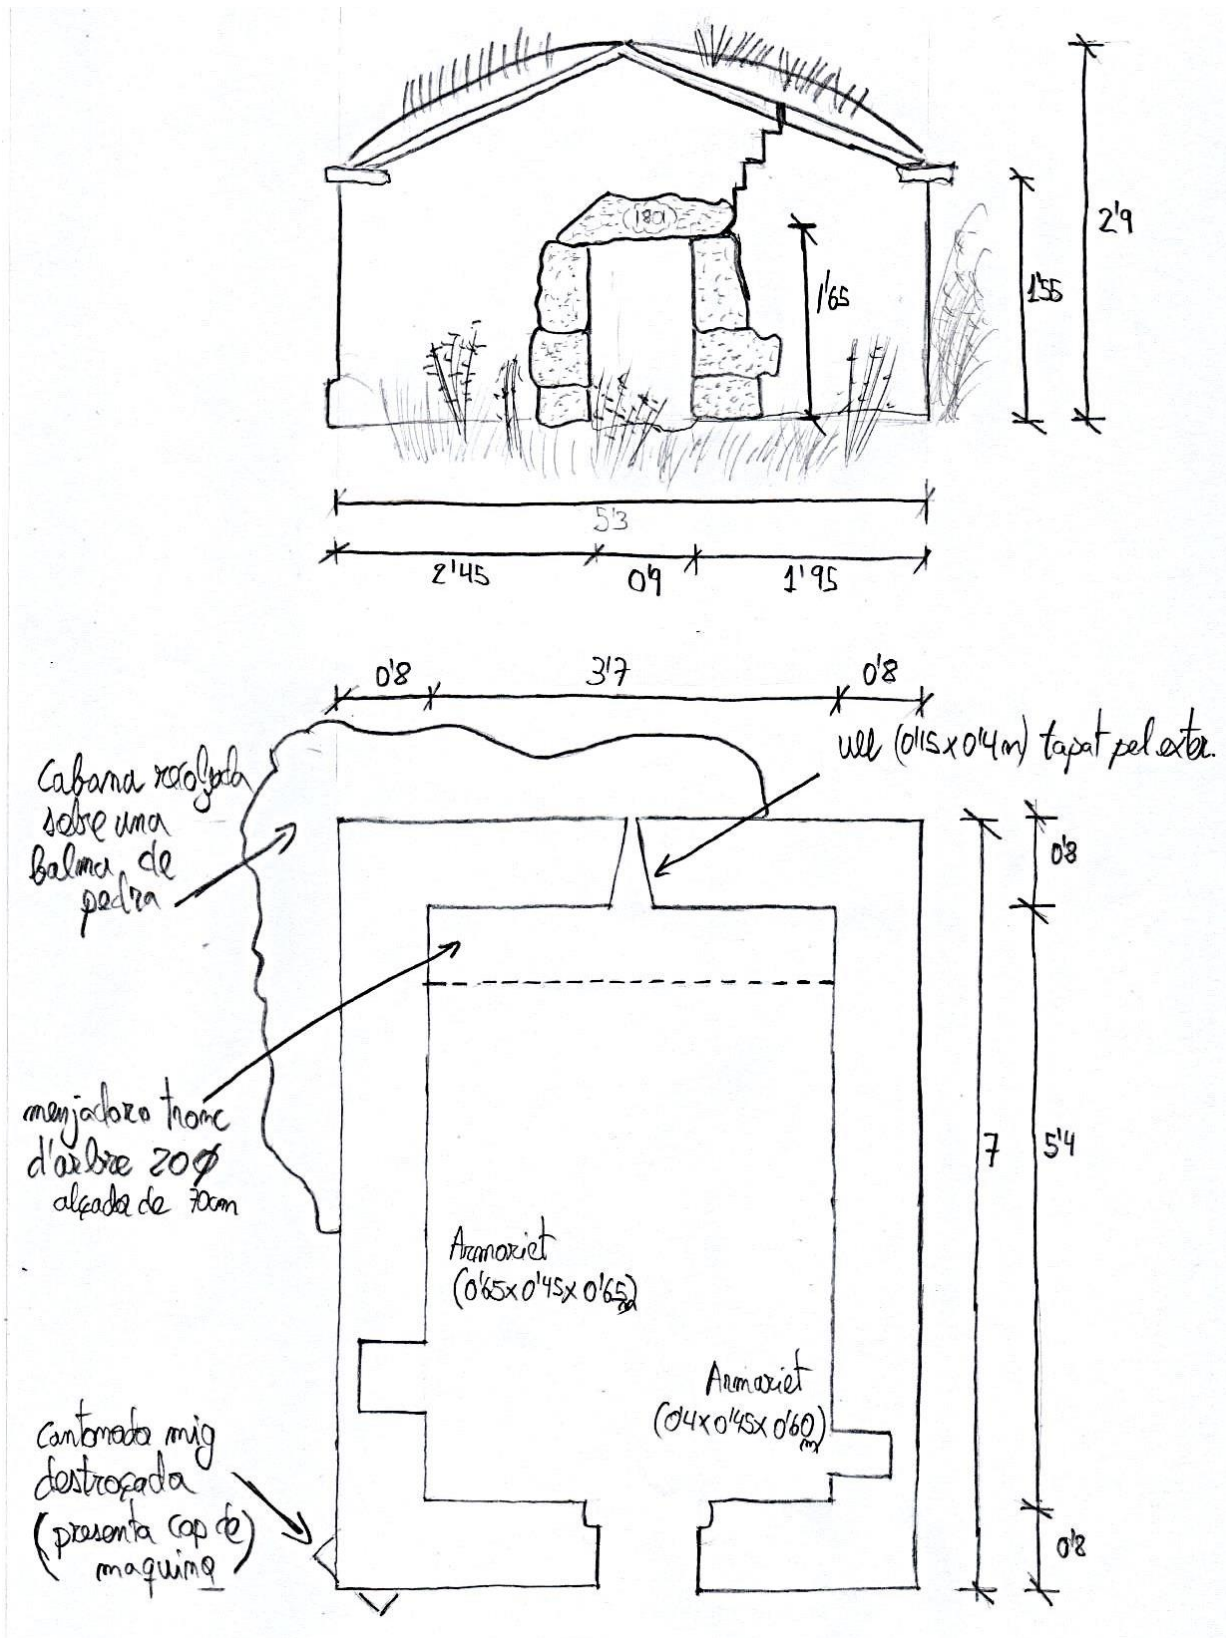 1801
2'9
1'55
1'65
5'3
2'45
0'9
1'95
0'8
3'7
0'8
ull (0'15x0'4m) tapat pel exter.
Cabana recolzada
sobre una
balma de
pedra
0'8
menjadora tronc
d'arbre 20Ø
alçada de 70cm
7
5'4
Armariet
(0'65x0'45x0'65)
m
Armariet
(0'4x0'45x0'60)
m
Cantonada mig
destroçada
(presenta cop de)
maquina
0'8